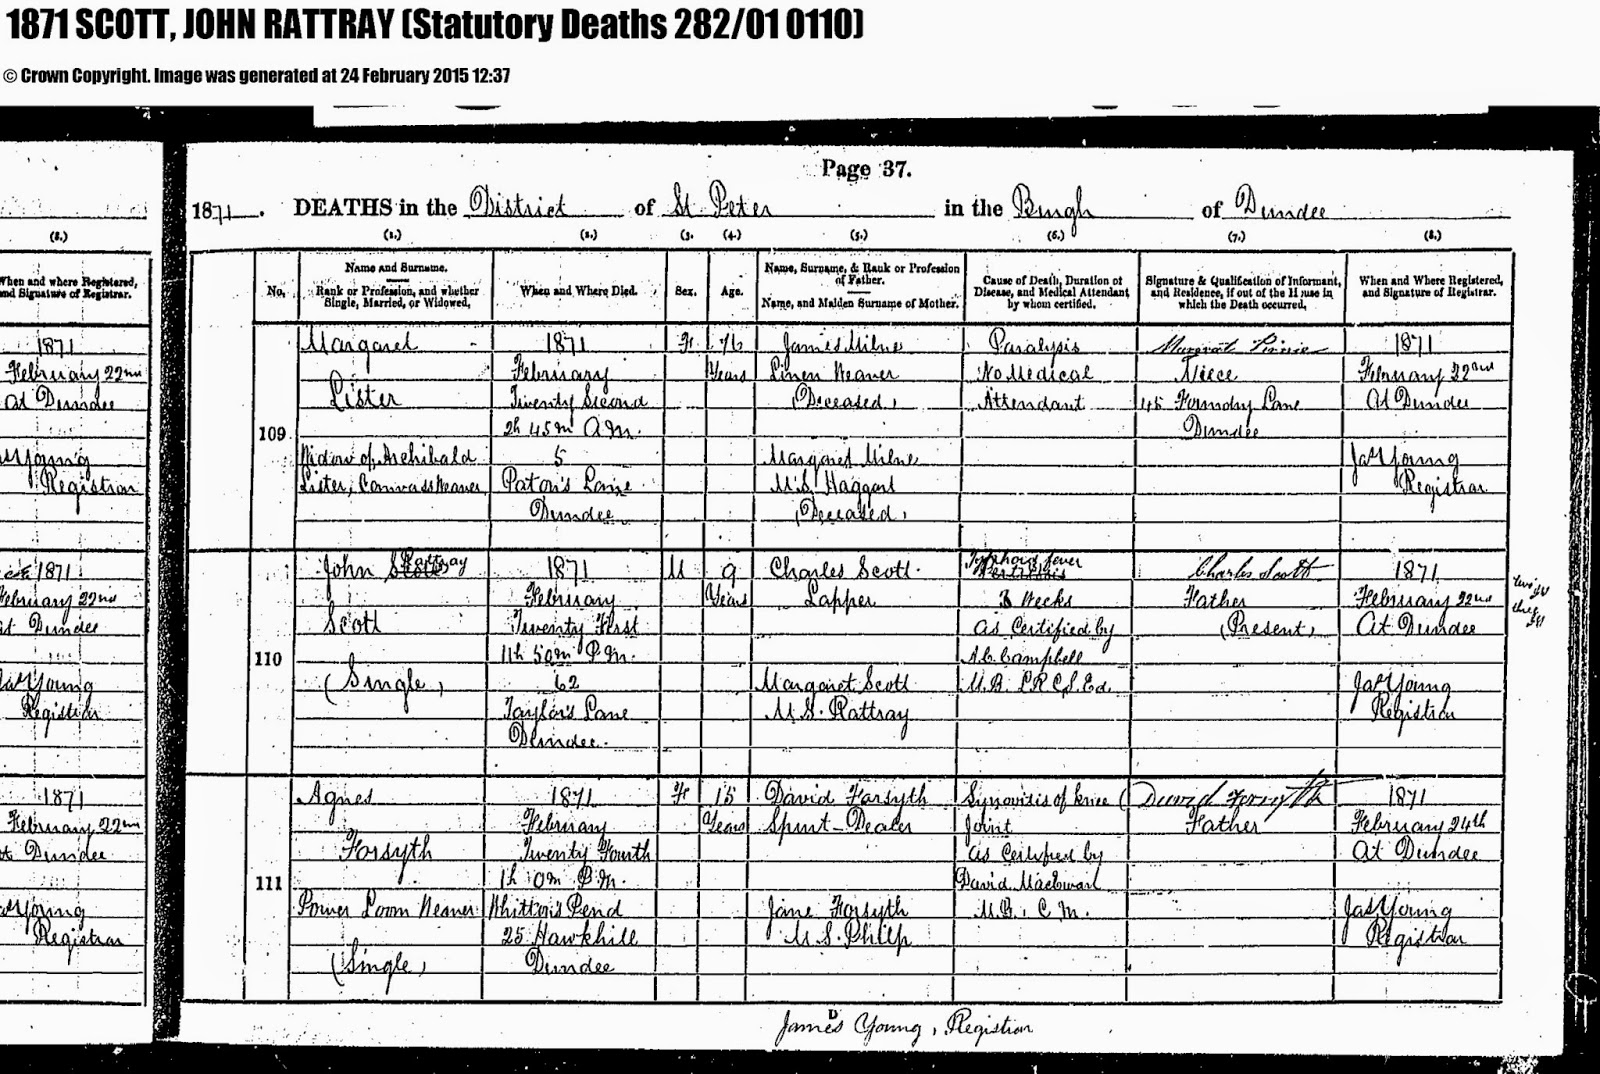 1871 SCOTT, JOHN RATTRAY (Statutory Deaths 282/01 0110)
© Crown Copyright. Image was generated at 24 February 2015 12:37
Page 37.
1871. DEATHS in the District of St Peter in the Burgh of Dundee
(8.)
(1.) (2.) (3. (4.) (5.) (6.) (7.) (8.)
When and where Registered,
and Signature of Registrar.
No.
Name and Surname.
Rank or Profession, and whether
Single, Married, or Widowed.
When and Where Died.
Sex.
Age.
Name, Surname, & Rank or Profession
of Father.
Name, and Maiden Surname of Mother.
Cause of Death, Duration of
Disease, and Medical Attendant
by whom certified.
Signature & Qualification of Informant,
and Residence, if out of the House in
which the Death occurred.
When and Where Registered,
and Signature of Registrar.
1871
February 22nd
at Dundee
Jas Young
Registrar
109
Margaret
Lister
Widow of Archibald
Lister, Canvass Weaver
1871
February
Twenty Second
2h 45m A.M.
5
Paton's Lane
Dundee
F
76
Years
James Milne
Linen Weaver
(Deceased)
Margaret Milne
M.S. Haggart
(Deceased)
Paralysis
No Medical
Attendant
Margrat Pirrie
Niece
45 Formdry Lane
Dundee
1871
February 22nd
At Dundee
Jas Young
Registrar
1871
February 22nd
at Dundee
Jas Young
Registrar
110
John Scott Rattray
Scott
(Single)
1871
February
Twenty First
11h 50m P.M.
62
Taylor's Lane
Dundee.
M
9
Years
Charles Scott
Lapper
Margaret Scott
M.S. Rattray
Typhoid fever
3 Weeks
As Certified by
A.C. Campbell
M.B. L.R.C.S. Ed.
Charles Scott
Father
(Present)
1871
February 22nd
At Dundee
Jas Young
Registrar
two
three
1871
February 22nd
at Dundee
Jas Young
Registrar
111
Agnes
Forsyth
Power Loom Weaver
(Single)
1871
February
Twenty Fourth
1h 0m P.M.
Whitton's Pend
25 Hawkhill
Dundee
F
15
Years
David Forsyth
Spirit-Dealer
Jane Forsyth
M.S. Philp
Synovitis of knee
Joint
As Certified by
David MacEwan
M.B., C.M.
David Forsyth
Father
1871
February 24th
At Dundee
Jas Young
Registrar
James D Young, Registrar